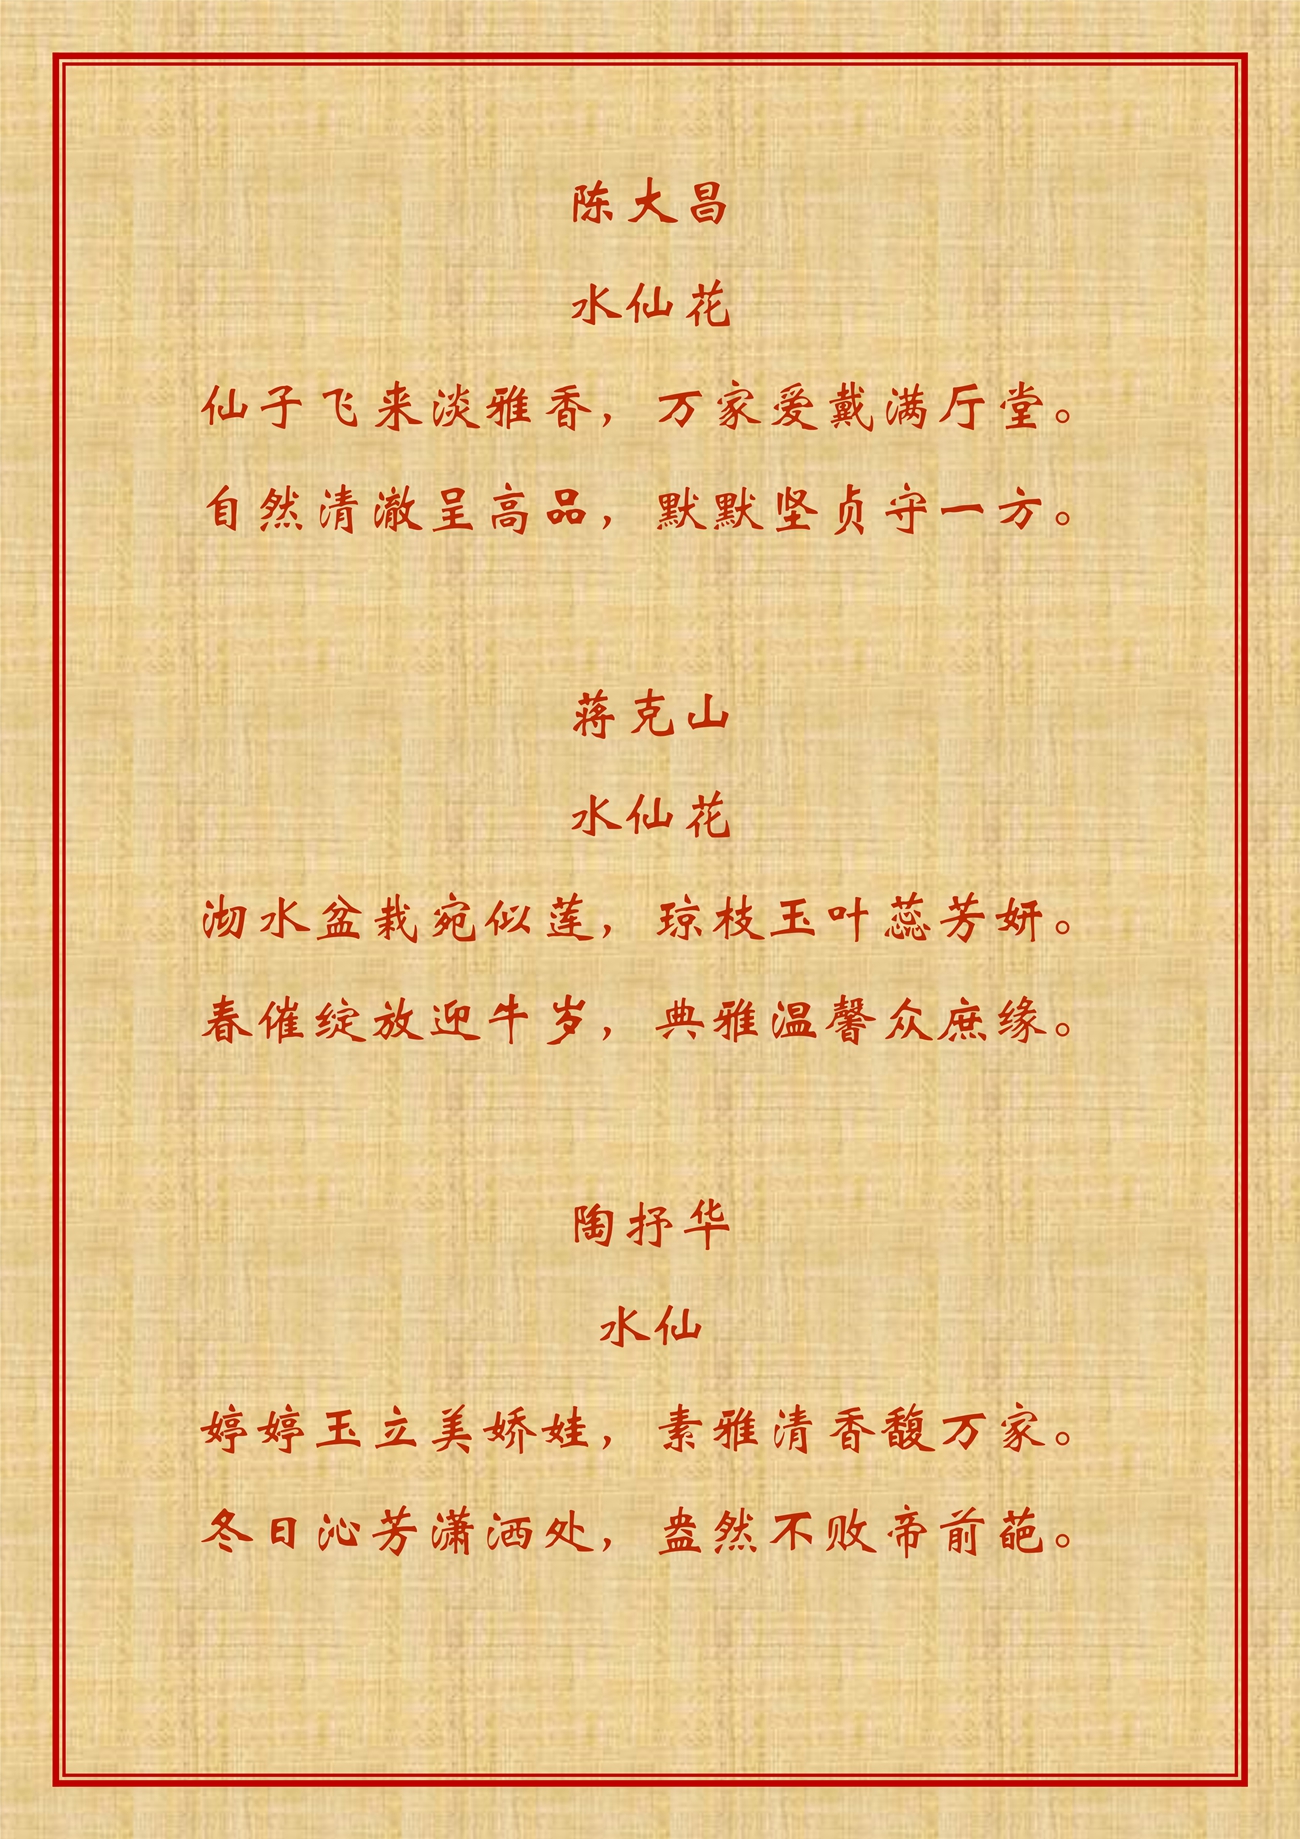 陈大昌
水仙花
仙子飞来淡雅香，万家爱戴满厅堂。
自然清澈呈高品，默默坚贞守一方。
蒋克山
水仙花
沏水盆栽宛似莲，琼枝玉叶蕊芳妍。
春催绽放迎牛岁，典雅温馨众庶缘。
陶抒华
水仙
婷婷玉立美娇娃，素雅清香馥万家。
冬日沁芳潇洒处，盎然不败帝前葩。